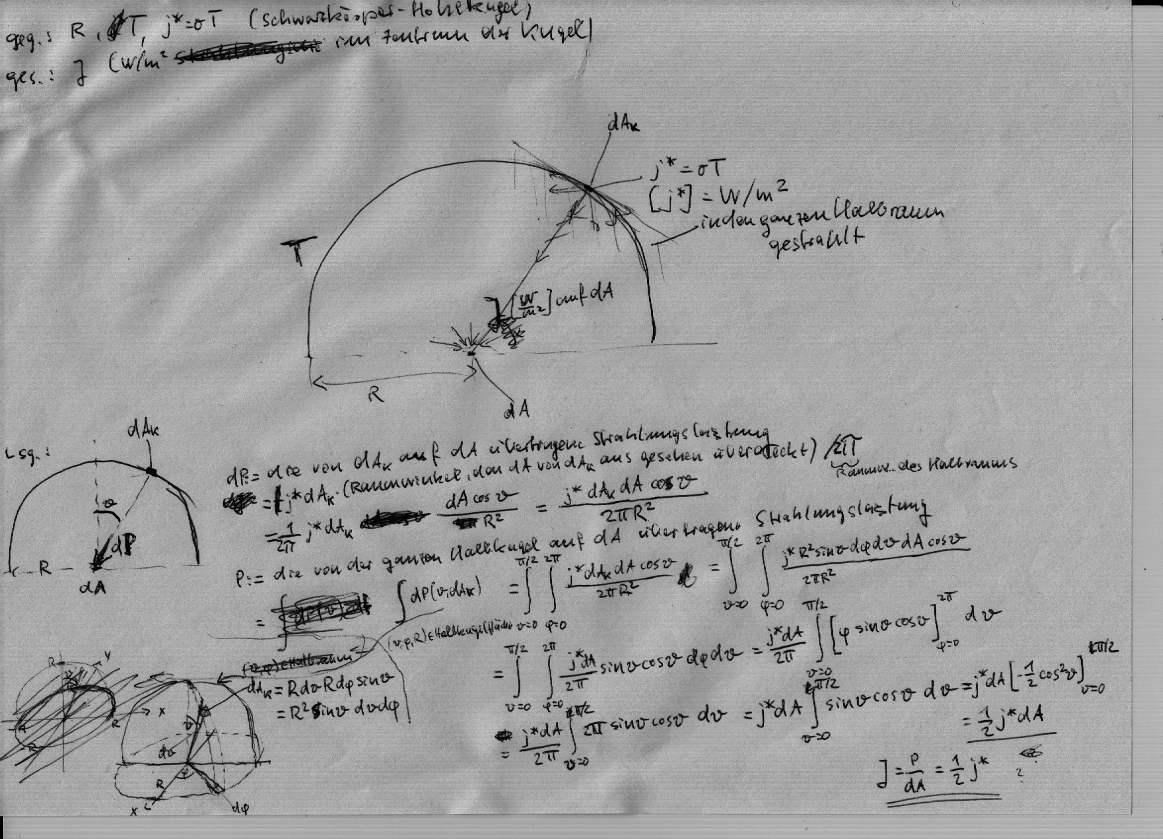 geg.: R, T, j*=σT (Schwarzkörper-Hohlkugel)
ges.: J (W/m² im Zentrum der Kugel)
dAₖ
j* = σT
[j*] = W/m²
in den ganzen Halbraum
gestrahlt
T
J [W/m²] auf dA
R
dA
Lsg.:
dAₖ
ϑ
dP
R
dA
dP:= die von dAₖ auf dA übertragene Strahlungsleistung
= j* dAₖ · (Raumwinkel, den dA von dAₖ aus gesehen überdeckt) / 2π
Raumw. des Halbraums
= 1/2π j* dAₖ dA cosϑ / R² = j* dAₖ dA cosϑ / 2πR²
P:= die von der ganzen Halbkugel auf dA übertragene Strahlungsleistung
= ∫ dP(ϑ,dAₖ) = ∫_{ϑ=0}^{π/2} ∫_{φ=0}^{2π} j* dAₖ dA cosϑ / 2πR² = ∫_{ϑ=0}^{π/2} ∫_{φ=0}^{2π} j* R² sinϑ dφ dϑ dA cosϑ / 2πR²
(ϑ,φ,R) ∈ Halbkugelfläche
= ∫_{ϑ=0}^{π/2} ∫_{φ=0}^{2π} j* dA / 2π sinϑ cosϑ dφ dϑ = j* dA / 2π ∫_{ϑ=0}^{π/2} [φ sinϑ cosϑ]_{φ=0}^{2π} dϑ
dAₖ = R dϑ R dφ sinϑ
= R² sinϑ dϑ dφ
= j* dA / 2π ∫_{ϑ=0}^{π/2} 2π sinϑ cosϑ dϑ = j* dA ∫_{ϑ=0}^{π/2} sinϑ cosϑ dϑ = j* dA [-1/2 cos²ϑ]_{ϑ=0}^{π/2}
= 1/2 j* dA
J = P/dA = 1/2 j*
?
R
Y
R
x
R
ϑ
dϑ
R
φ
x
dφ